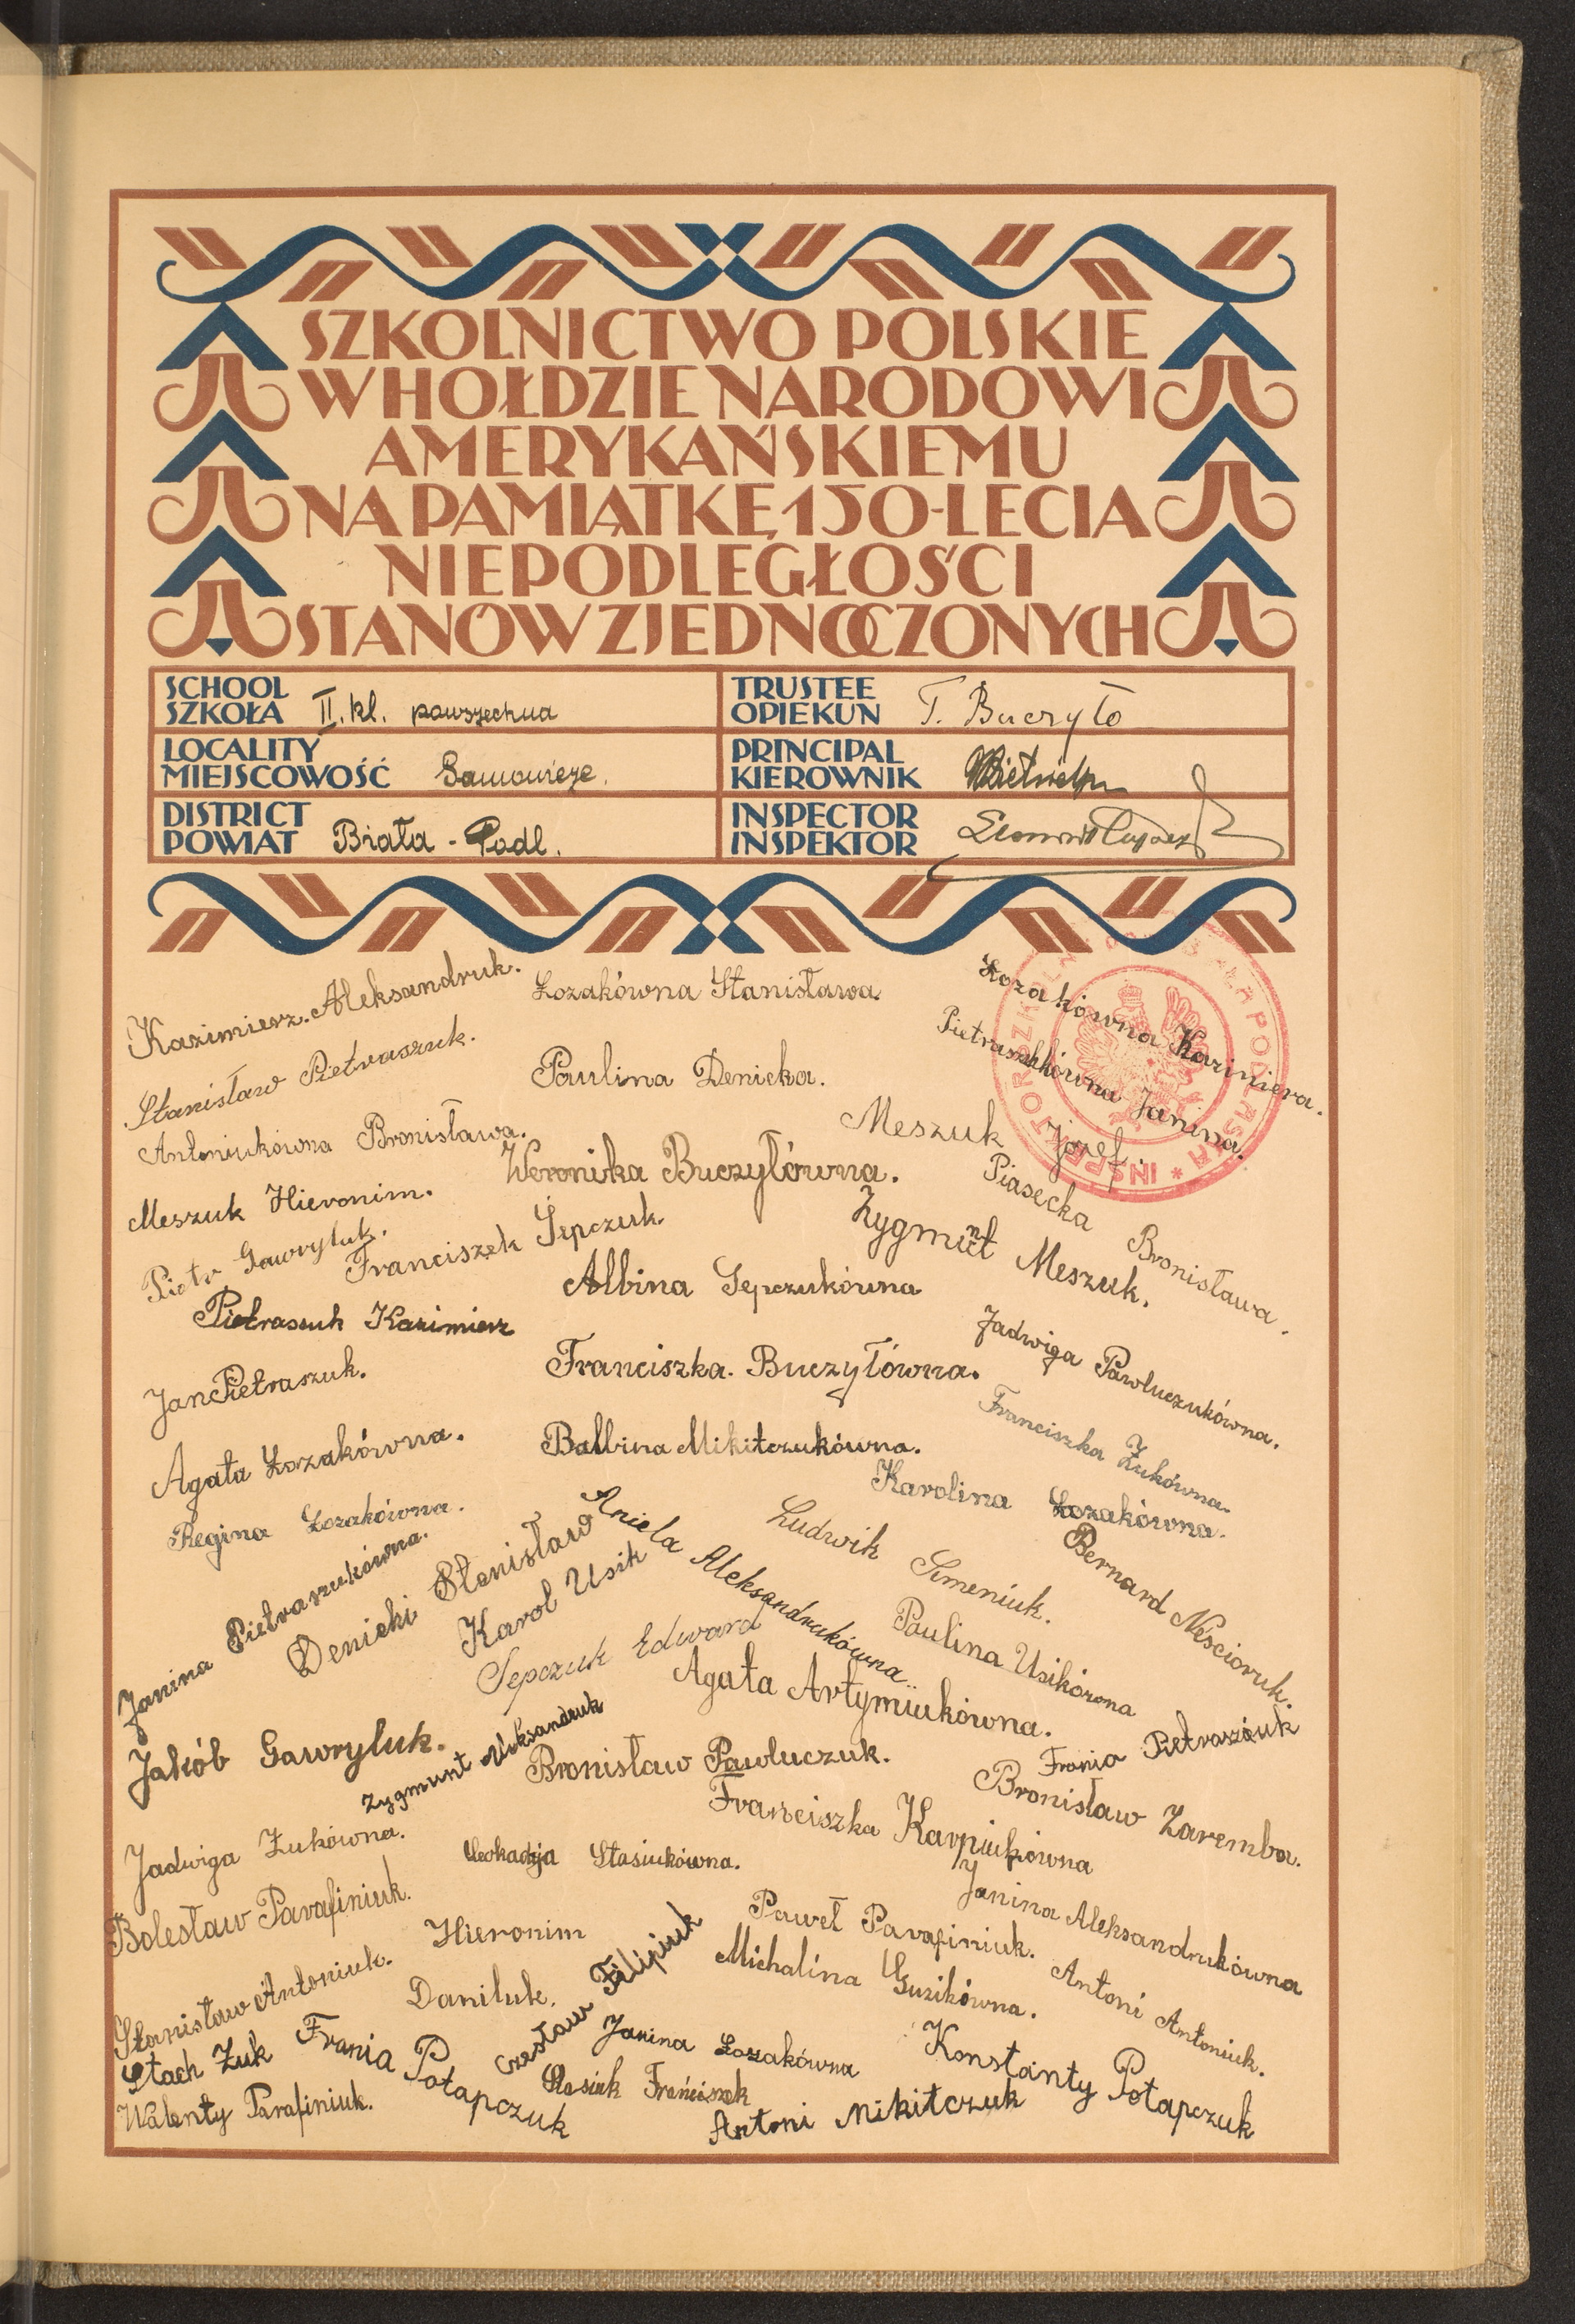 SZKOLNICTWO POLSKIE
W HOŁDZIE NARODOWI
AMERYKAŃSKIEMU
NA PAMIĄTKĘ 150-LECIA
NIEPODLEGŁOŚCI
STANÓW ZJEDNOCZONYCH
SCHOOL
SZKOŁA II. kl. powszechna
TRUSTEE
OPIEKUN T. Buczyło
LOCALITY
MIEJSCOWOŚĆ
PRINCIPAL
KIEROWNIK
DISTRICT
POWIAT Biała - Podl.
INSPECTOR
INSPEKTOR
Kazimierz. Aleksandruk.
Łozakówna Stanisława
Łozakówna Kazimiera.
Stanisław Pietraszuk.
Paulina Denicka.
Pietraszukówna Janina.
Antoniukówna Bronisława.
Weronika Buczyłówna.
Meszuk Józef.
Piasecka Bronisława.
Meszuk Hieronim.
Piotr Gawryluk.
Franciszek Sępczuk.
Zygmunt Meszuk.
Albina Sępczukówna
Pietraszuk Kazimierz
Jadwiga Pawluczukówna.
Franciszka. Buczyłówna.
Jan Pietraszuk.
Franciszka Żukówna.
Agata Łozakówna.
Balbina Mikitczukówna.
Karolina Łozakówna.
Regina Łozakówna.
Janina Pietraszukówna.
Denicki Stanisław
Aniela Aleksandrukówna.
Ludwik Semeniuk.
Bernard Neścioruk.
Karol Usik
Sepczuk Edward
Paulina Usikówna
Agata Artymiukówna.
Jakób Gawryluk.
Zygmunt Aleksandruk
Bronisław Pawluczuk.
Frania Pietraszuk
Bronisław Zaremba.
Franciszka Karpiukówna
Jadwiga Żukówna.
Leokadja Stasiukówna.
Janina Aleksandrukówna
Bolesław Parafiniuk.
Hieronim Daniluk.
Paweł Parafiniuk.
Antoni Antoniuk.
Michalina Guzikówna.
Czesław Filipiuk
Stanisław Antoniuk.
Stach Żuk
Frania Potapczuk
Janina Łozakówna
Konstanty Potapczuk
Stasiuk Franciszek
Walenty Parafiniuk.
Antoni Mikitczuk